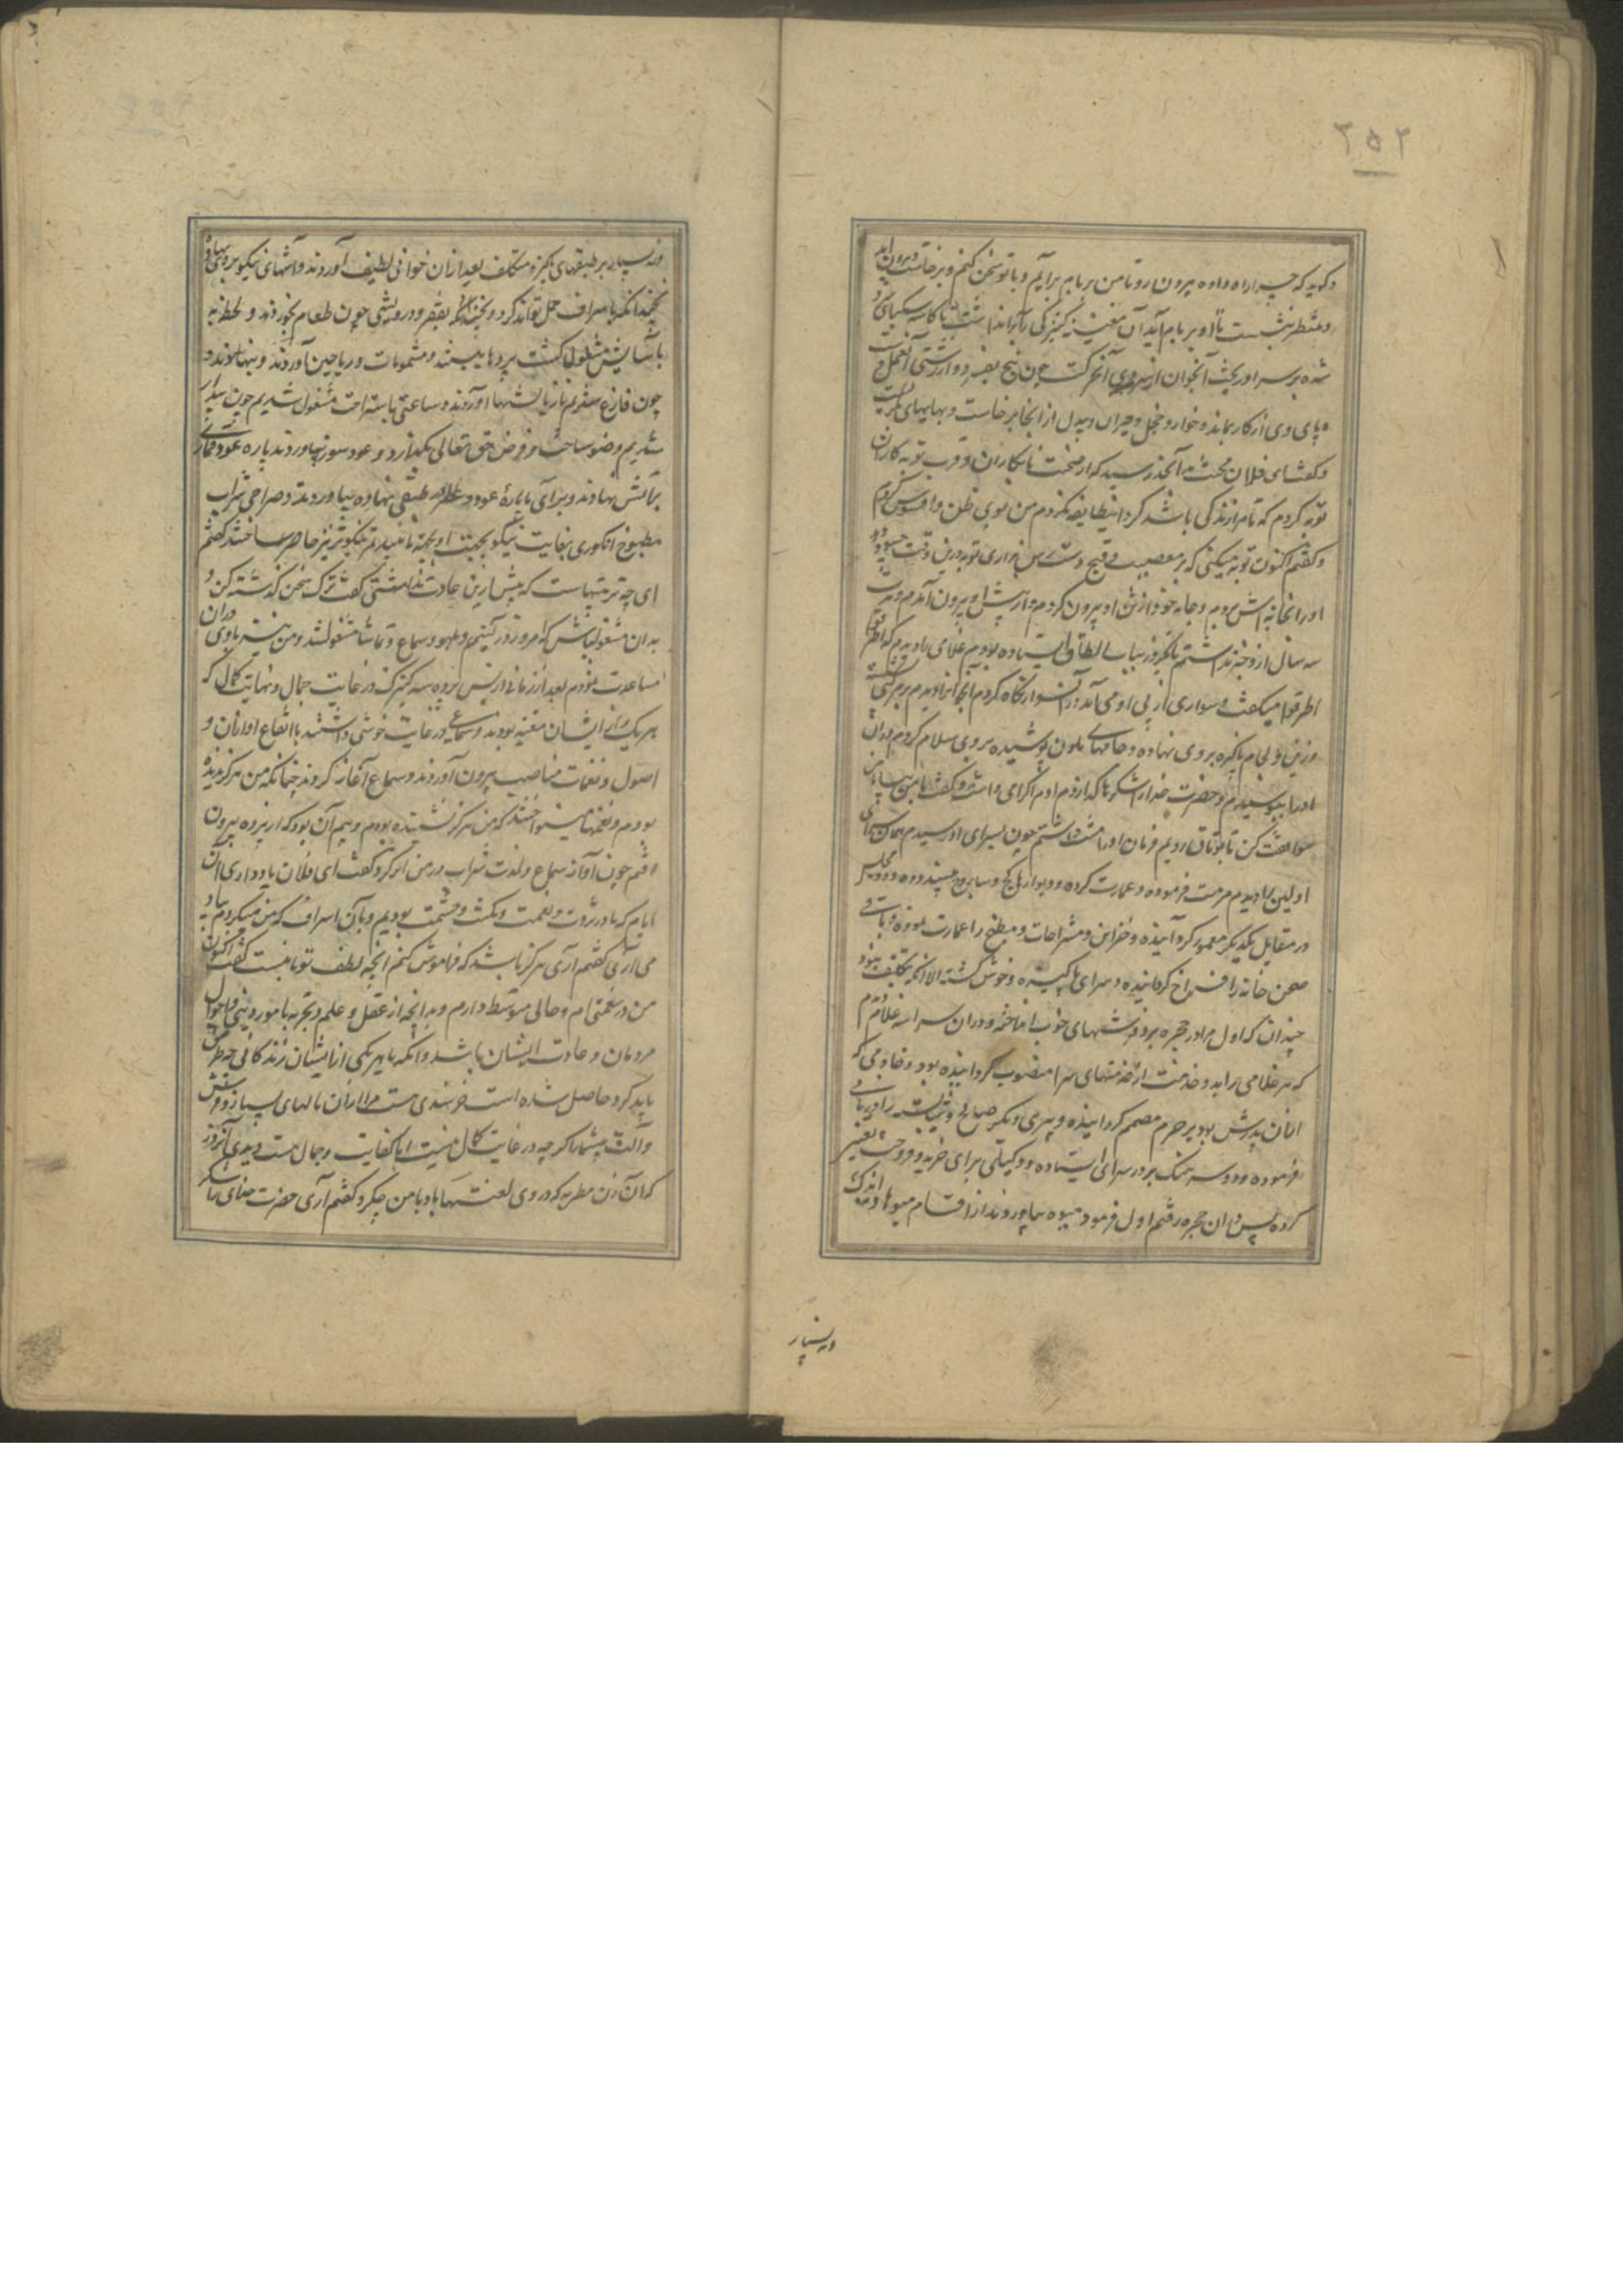 ۲۵۲
و گوید که چرا راه داده بیرون رو تا من بر بام برآیم و با تو سخن کنم و برخاست و بیرون آمد
و منتظر بنشست تا او بر بام آید آن مغنیه کنیزکی را بر انداشت تا کاسه سکبای
شده بر سر او ریخت آنجوان از سردی آخر گشت چون یخ بفسرد و از زشتی آن عمل
پای وی از کار بماند و خوار و خجل و حیران و بیدل از آنجا برخاست و بهایهای بگریست
و گفت ای فلان محنت من بدانحد رسید که از صحبت نابکاران و قرب تو به کاران
توبه کردم که تا مرا زندگی باشد گرد این طایفه نگردم من بوی طنز و افسوس کردم
و گفتم اکنون توبه میکنی که بر معصیت و قبیح دسترس نداری توبه درین وقت چه سود دارد
او را بخانه اش بردم و جامه خود از تن او بیرون کردم و از پیش او بیرون آمدم و مدت
سه سال از وی خبر نداشتم تا یکروز بباب الطاق ایستاده بودم غلامی را دیدم که اطرقوا
اطرقوا میگفت و سواری از پی او می آمد در آن سوار نگاه کردم آنجوانرا دیدم بر مرکبی نشسته
و زین و لجام پاکیزه بر وی نهاده و جامهای ملون پوشیده بر وی سلام کردم و ران
او را ببوسیدم و حضرت خدا را شکرها گذاردم او مرا گرامی داشت و گفت با من بیا و
موافقت کن تا بوثاق رویم فرمان او را امتثال داشتم چون بسرای او رسیدم همان سرای
اولین را دیدم مرمت فرموده و عمارت کرده و دیوارها بگچ و ساروج سپید و دو مجلس
در مقابل یکدیگر معمور گردانیده و خزاین و مستراحات و مطبخ را عمارت نموده و باقی
صحن خانه را فراخ گردانیده و سرای پاکیزه و خوش گشته الا آنکه بتکلف نبود
چندان که اول مرا در حجره برد و فرشهای خوب انداخته و در آن سرا سه غلام دیدم
که هر غلامی را بدو خدمت از خدمتهای سرا منصوب گردانیده بود و خادمی که
از آن پدرش بود بر حرم مصمم گردانیده و پیری دیگر صالح و شایسته را دربانی
فرموده و دو سه سگ بر در سرای ایستاده و وکیلی برای خرید و فروخت تعیین
کرده پس در آن حجره رفتم اول فرمود میوه بیاوردند از اقسام میوها اندک
و بسیار
و نه بسیار بر طبقهای پاکیزه و متکلف بعد از آن خوانی لطیف آوردند و آشهای نیکو بر وی نهاده
نچندانکه باسراف حمل توان کرد و نچندانکه بفقر و درویشی چون طعام بخوردند و لحظه
باسایش مشغول گشت پردها ببستند و مشمومات و ریاحین آوردند و بنهادند و
چون فارغ شدیم باز بالشتها آوردند و ساعتی باستراحت مشغول شدیم چون بیدار
شدیم وضو ساخت و فرض حق تعالی بگذارد و عود سوز بیاوردند پاره عود قماری
بر آتش نهادند و برای ما پاره عود و عطر در طبقی نهاده بیاوردند و صراحی شراب
مطبوخ انگوری بغایت نیکو بجهت او پخته و نبید تمر نیکوتر نیز حاضر ساختند گفتم
ای چه ترتیبهاست که پیش ازین عادت نداشتی گفت ترک سخن گذشته کن و
بدان مشغول باش که امروز در آئیم و بلهو و سماع و تماشا مشغول شد و من نیز با وی دران
مساعدت نمودم بعد از زمانی از پس پرده سه کنیزک در غایت جمال و نهایت کمال که
هر یک از ایشان مغنیه بودند و سماعی در غایت خوشی داشتند با انواع اوازان و
اصول و نغمات مناسب بیرون آوردند و سماع آغاز کردند چنانکه من هرگز ندیده
بودم و نغمها مینواختند که من هرگز نشنیده بودم و بیم آن بود که از پرده بیرون
افتم چون آواز سماع و لذت شراب در من اثر کرد گفت ای فلان یاد داری آن
ایام که ما در ثروت و نعمت و مکنت و حشمت بودیم و با آن اسراف که من میکردم بیاد
می آری گفتم آری هرگز نباشد که فراموش کنم آنچه لطف تو با منست گفت اکنون
من در نعمتی ام و حالی متوسط دارم و بدانچه از عقل و علم و تجربه بامور دنیی و احوال
مردمان و عادت ایشان باشد و آنکه با هر یکی از ایشان زندگانی چه طریق
باید کرد حاصل شده است خرسندی هست مرا از آن مالهای بسیار و فرش
و آلت بیشمار اگر چه در غایت کمال نیست اما بکفایت و جمال هست دیدی آنروز
که آن زن مطربه که بر وی لعنت ها باد با من چکرد گفتم آری حضرت خدای را شکر